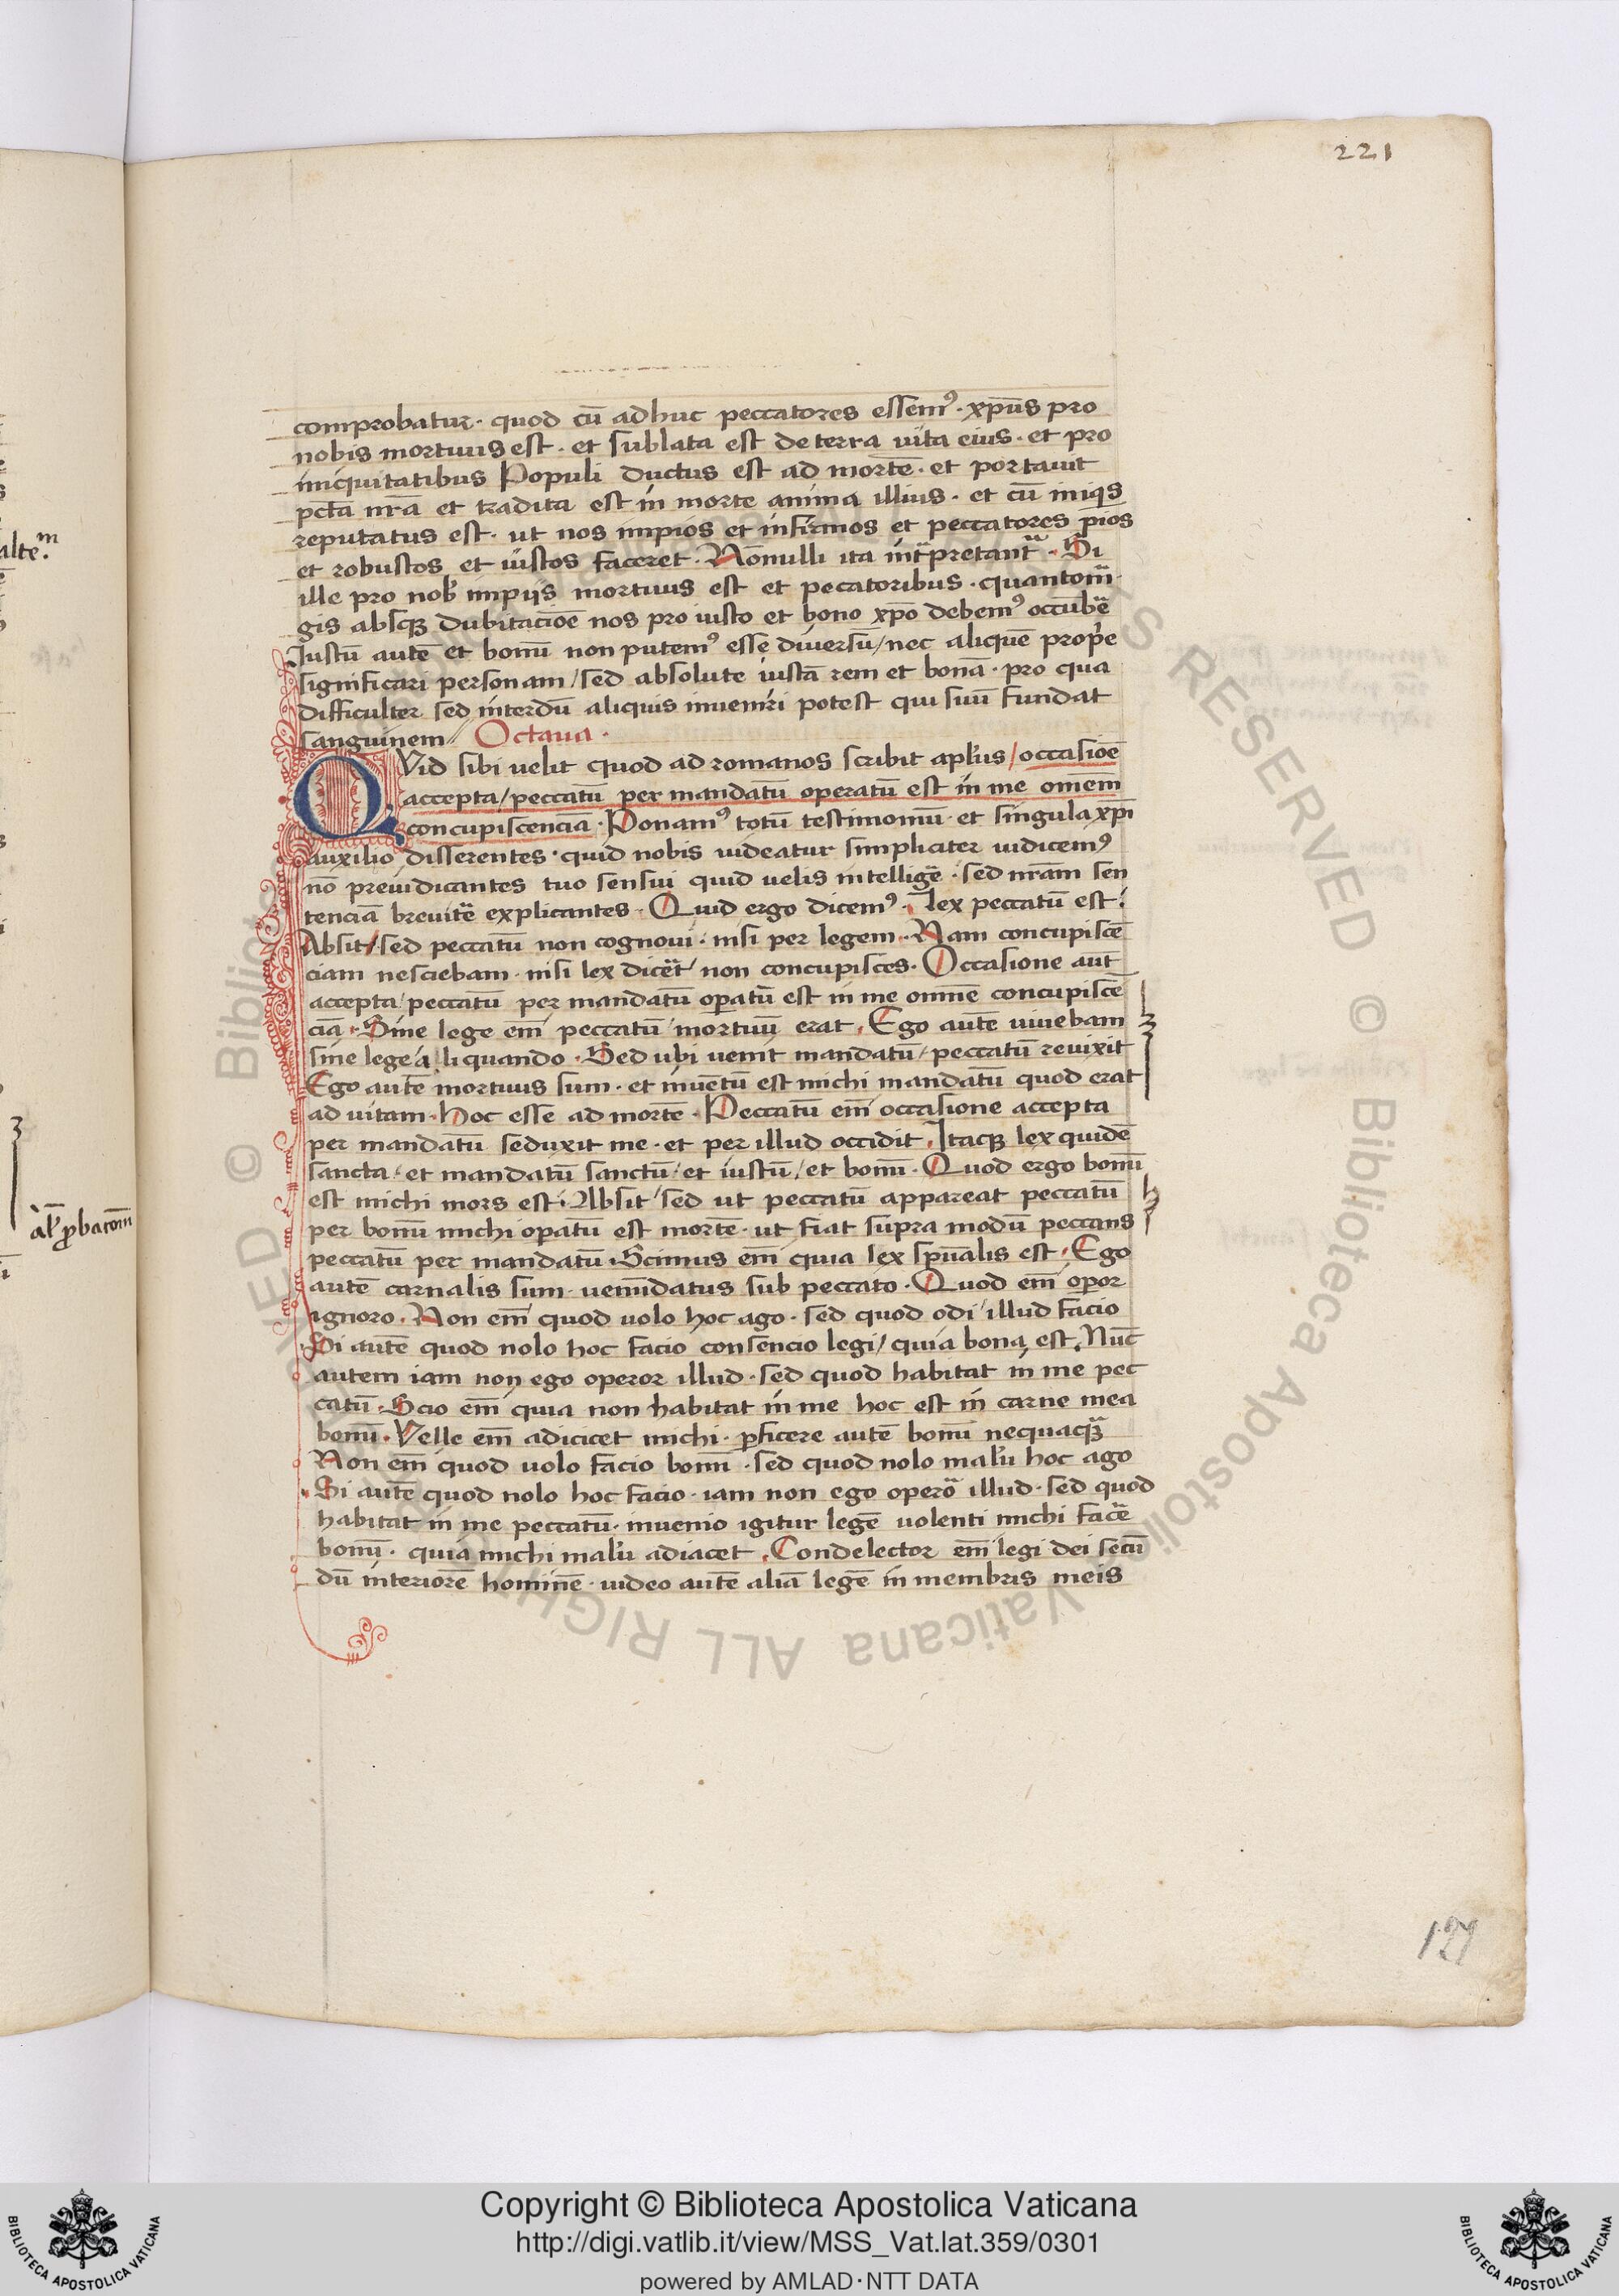 221
comprobatur · quod cū adhuc peccatores essemꝰ · xp̄us pro
nobis mortuus est · et sublata est de terra uita eius · et pro
iniquitatibus Populi ductus est ad mortē · et portauit
pctā nrā et tradita est in morte anima illius · et cū iniqis
reputatus est · ut nos impios et infirmos et peccatores pios
et robustos et iustos faceret · Nōnulli ita int̄pretant̄ · Si
ille pro nob̄ impijs mortuus est et pecatoribus · quantoma
gis absqꝫ dubitacioē nos pro iusto et bono xp̄o debemꝰ occūbe
Iustū autē et bonū non putemꝰ esse diuersū / nec aliquē prop̄e
significari personam / sed absolute iustā rem et bonā · pro qua
difficulter sed interdū aliquis inueniri potest qui suū fundat
sanguinem // Octaua ·
QVid sibi uelit quod ad romanos scribit apl̄us / occasioē
accepta / peccatū per mandatū operatū est in me omēm
concupiscenciā · Ponamꝰ totū testimoniū · et singula xp̄i
auxilio disserentes · quid nobis uideatur simpliciter iudicemꝰ
nō preiudicantes tuo sensui quid uelis intelligē · sed nrām sen
tenciā breuitē explicantes · Quid ergo dicemꝰ · lex peccatū est ·
Absit / sed peccatū non cognoui · nisi per legem · Nam concupiscē
ciam nesciebam · nisi lex dicēt / non concupisces · Occasione aut̄
accepta / peccatū per mandatū opatū est in me omnē concupiscē
ciā · Sine lege em̄ peccatū mortuū erat · Ego autē uiuebam
sine lege a li quando · Sed ubi uenit mandatū / peccatū reuixit
Ego autē mortuus sum · et inuētū est michi mandatū quod erat
ad uitam · hoc esse ad mortē · Peccatū em̄ occasione accepta
per mandatū seduxit me · et per illud occidit · Itaqꝫ lex quidē
sancta / et mandatū sanctū / et iustū / et bonū · Quod ergo bonū
est michi mors est · Absit / sed ut peccatū appareat peccatū
per bonū michi opatū est mortē · ut fiat supra modū peccans
peccatū per mandatū · Scimus em̄ quia lex spūalis est · Ego
autē carnalis sum · uenūdatus sub peccato · Quod em̄ opor
ignoro · Non em̄ quod uolo hoc ago · sed quod odi / illud facio
Si autē quod nolo hoc facio consencio legi / quia bona est · Nūc
autem iam non ego operor illud · sed quod habitat in me pec
catū · Scio em̄ quia non habitat in me hoc est in carne mea
bonū · Velle em̄ adicicet michi · pficere autē bonū nequaqꝫ
Non em̄ quod uolo facio bonū · sed quod nolo malū hoc ago
Si autē quod nolo hoc facio · iam non ego operō illud · sed quod
habitat in me peccatū · inuenio igitur legē uolenti michi facē
bonū · quia michi malū adiacet · Condelector em̄ legi dei secū
dū interiorē hominē · uideo autē aliā legē in membris meis
127
Copyright © Biblioteca Apostolica Vaticana
http://digi.vatlib.it/view/MSS_Vat.lat.359/0301
powered by AMLAD·NTT DATA